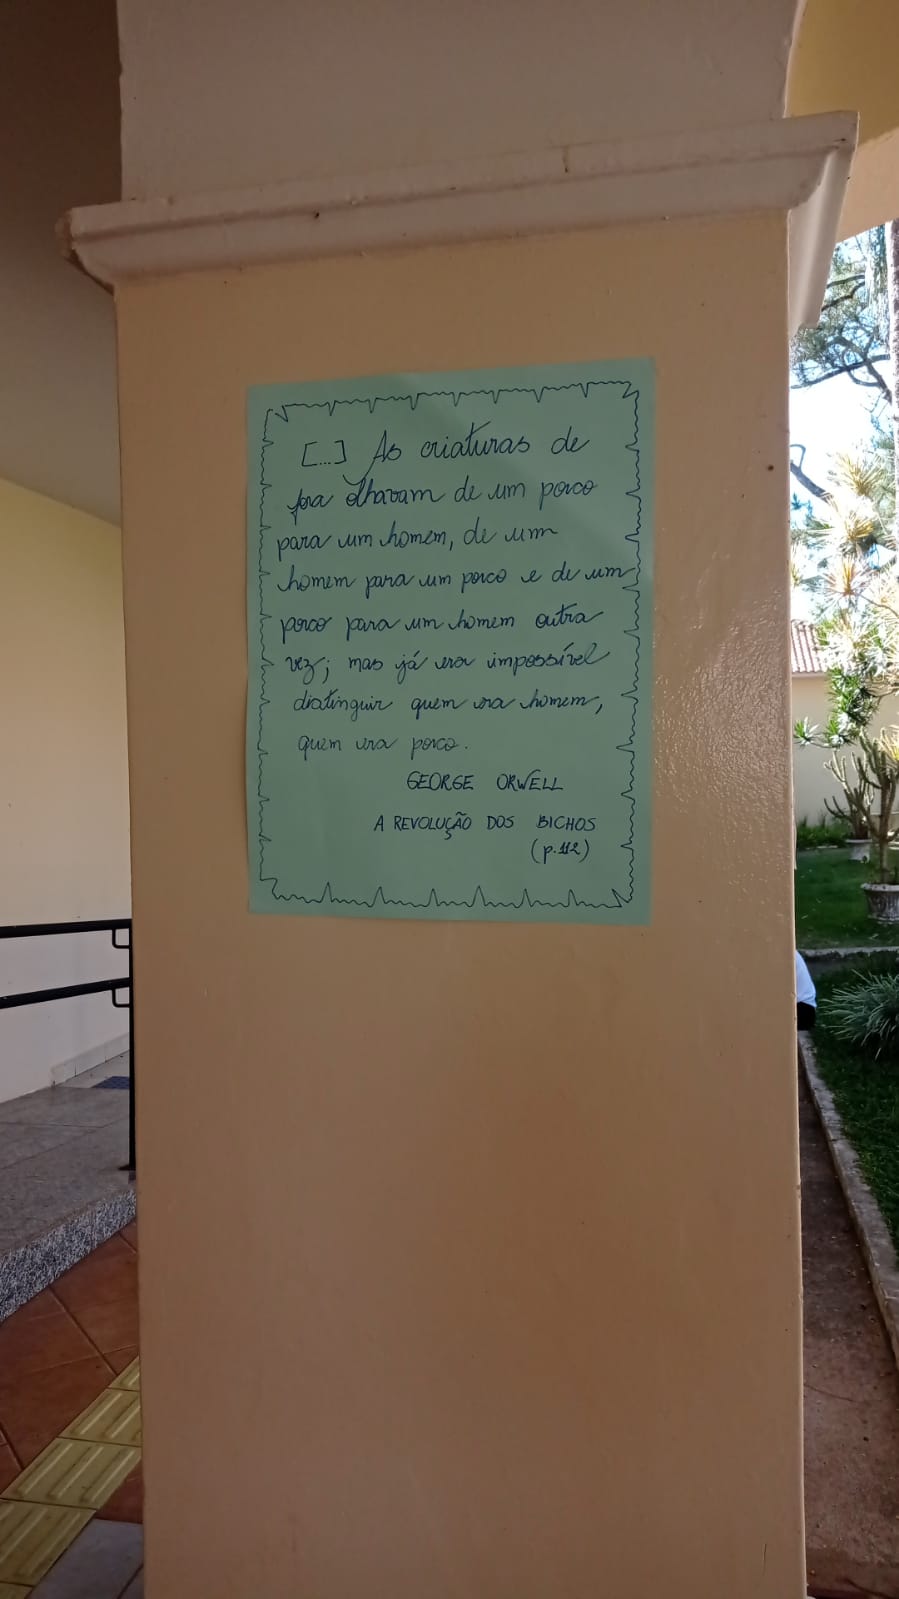 [...] As criaturas de
fora olhavam de um porco
para um homem, de um
homem para um porco e de um
porco para um homem outra
vez; mas já era impossível
distinguir quem era homem,
quem era porco.
GEORGE ORWELL
A REVOLUÇÃO DOS BICHOS
(p.112)